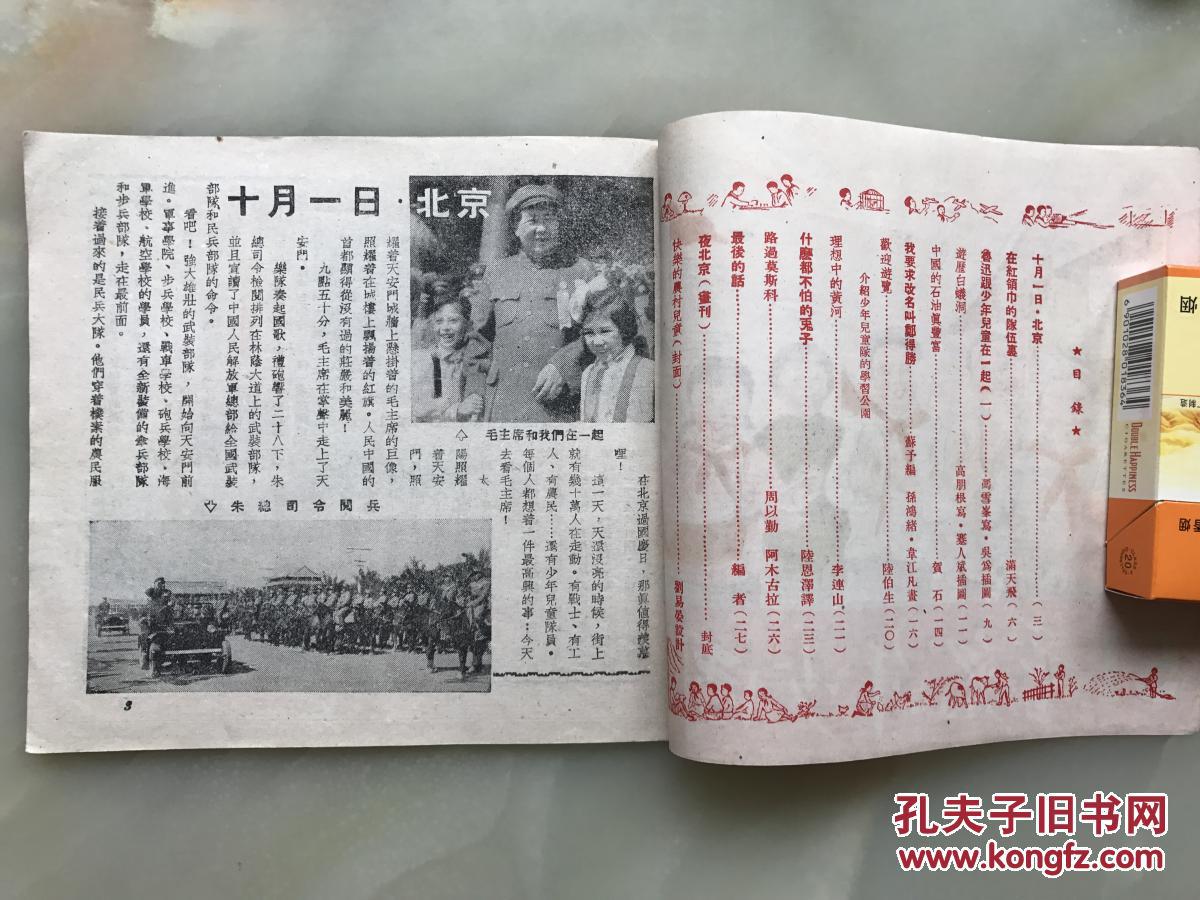 ★目錄★
十月一日·北京……(三)
在紅領巾的隊伍裏……滿天飛(六)
魯迅跟少年兒童在一起(一)……馮雪峯寫·吳爲插圖(九)
遊歷白蟻洞……高朋根寫·蹇人斌插圖(一一)
中國的石油眞豐富……賀 石(一四)
我要求改名叫鄺得勝……蘇予編 孫鴻緒·韋江凡畫(一六)
歡迎遊覽……陸伯生(二〇)
介紹少年兒童隊的學習公園
理想中的黃河……李連山(二一)
什麼都不怕的兎子……陸恩澤譯(二三)
路過莫斯科……周以勤 阿木古拉(二六)
最後的話……編 者(二七)
夜北京(畫刊)……封底
快樂的農村兒童(封面)……劉易晏設計
十月一日·北京
毛主席和我們在一起
在北京過國慶日，那眞值得羨慕
哩！
這一天，天還沒亮的時候，街上
就有幾十萬人在走動。有戰士、有工
人、有農民……還有少年兒童隊員。
每個人都想着一件最高興的事：今天
去看毛主席！
太
陽照耀
着天安
門，照
耀着天安門城牆上懸掛着的毛主席的巨像，
照耀着在城樓上飄揚着的紅旗。人民中國的
首都顯得從沒有過的莊嚴和美麗！
九點五十分，毛主席在掌聲中走上了天
安門。
樂隊奏起國歌，禮砲響了二十八下，朱
總司令檢閱排列在林蔭大道上的武裝部隊，
並且宣讀了中國人民解放軍總部給全國武裝
部隊和民兵部隊的命令。
看吧！強大雄壯的武裝部隊，開始向天安門前
進。軍事學院、步兵學校、戰車學校、砲兵學校、海
軍學校、航空學校的學員，還有全新裝備的傘兵部隊
和步兵部隊，走在最前面。
接着過來的是民兵大隊。他們穿着樸素的農民服
朱總司令閱兵
3
烟
6 901028 018364
DOUBLE HAPPINESS
CIGARETTES
20
香烟
孔夫子旧书网
www.kongfz.com